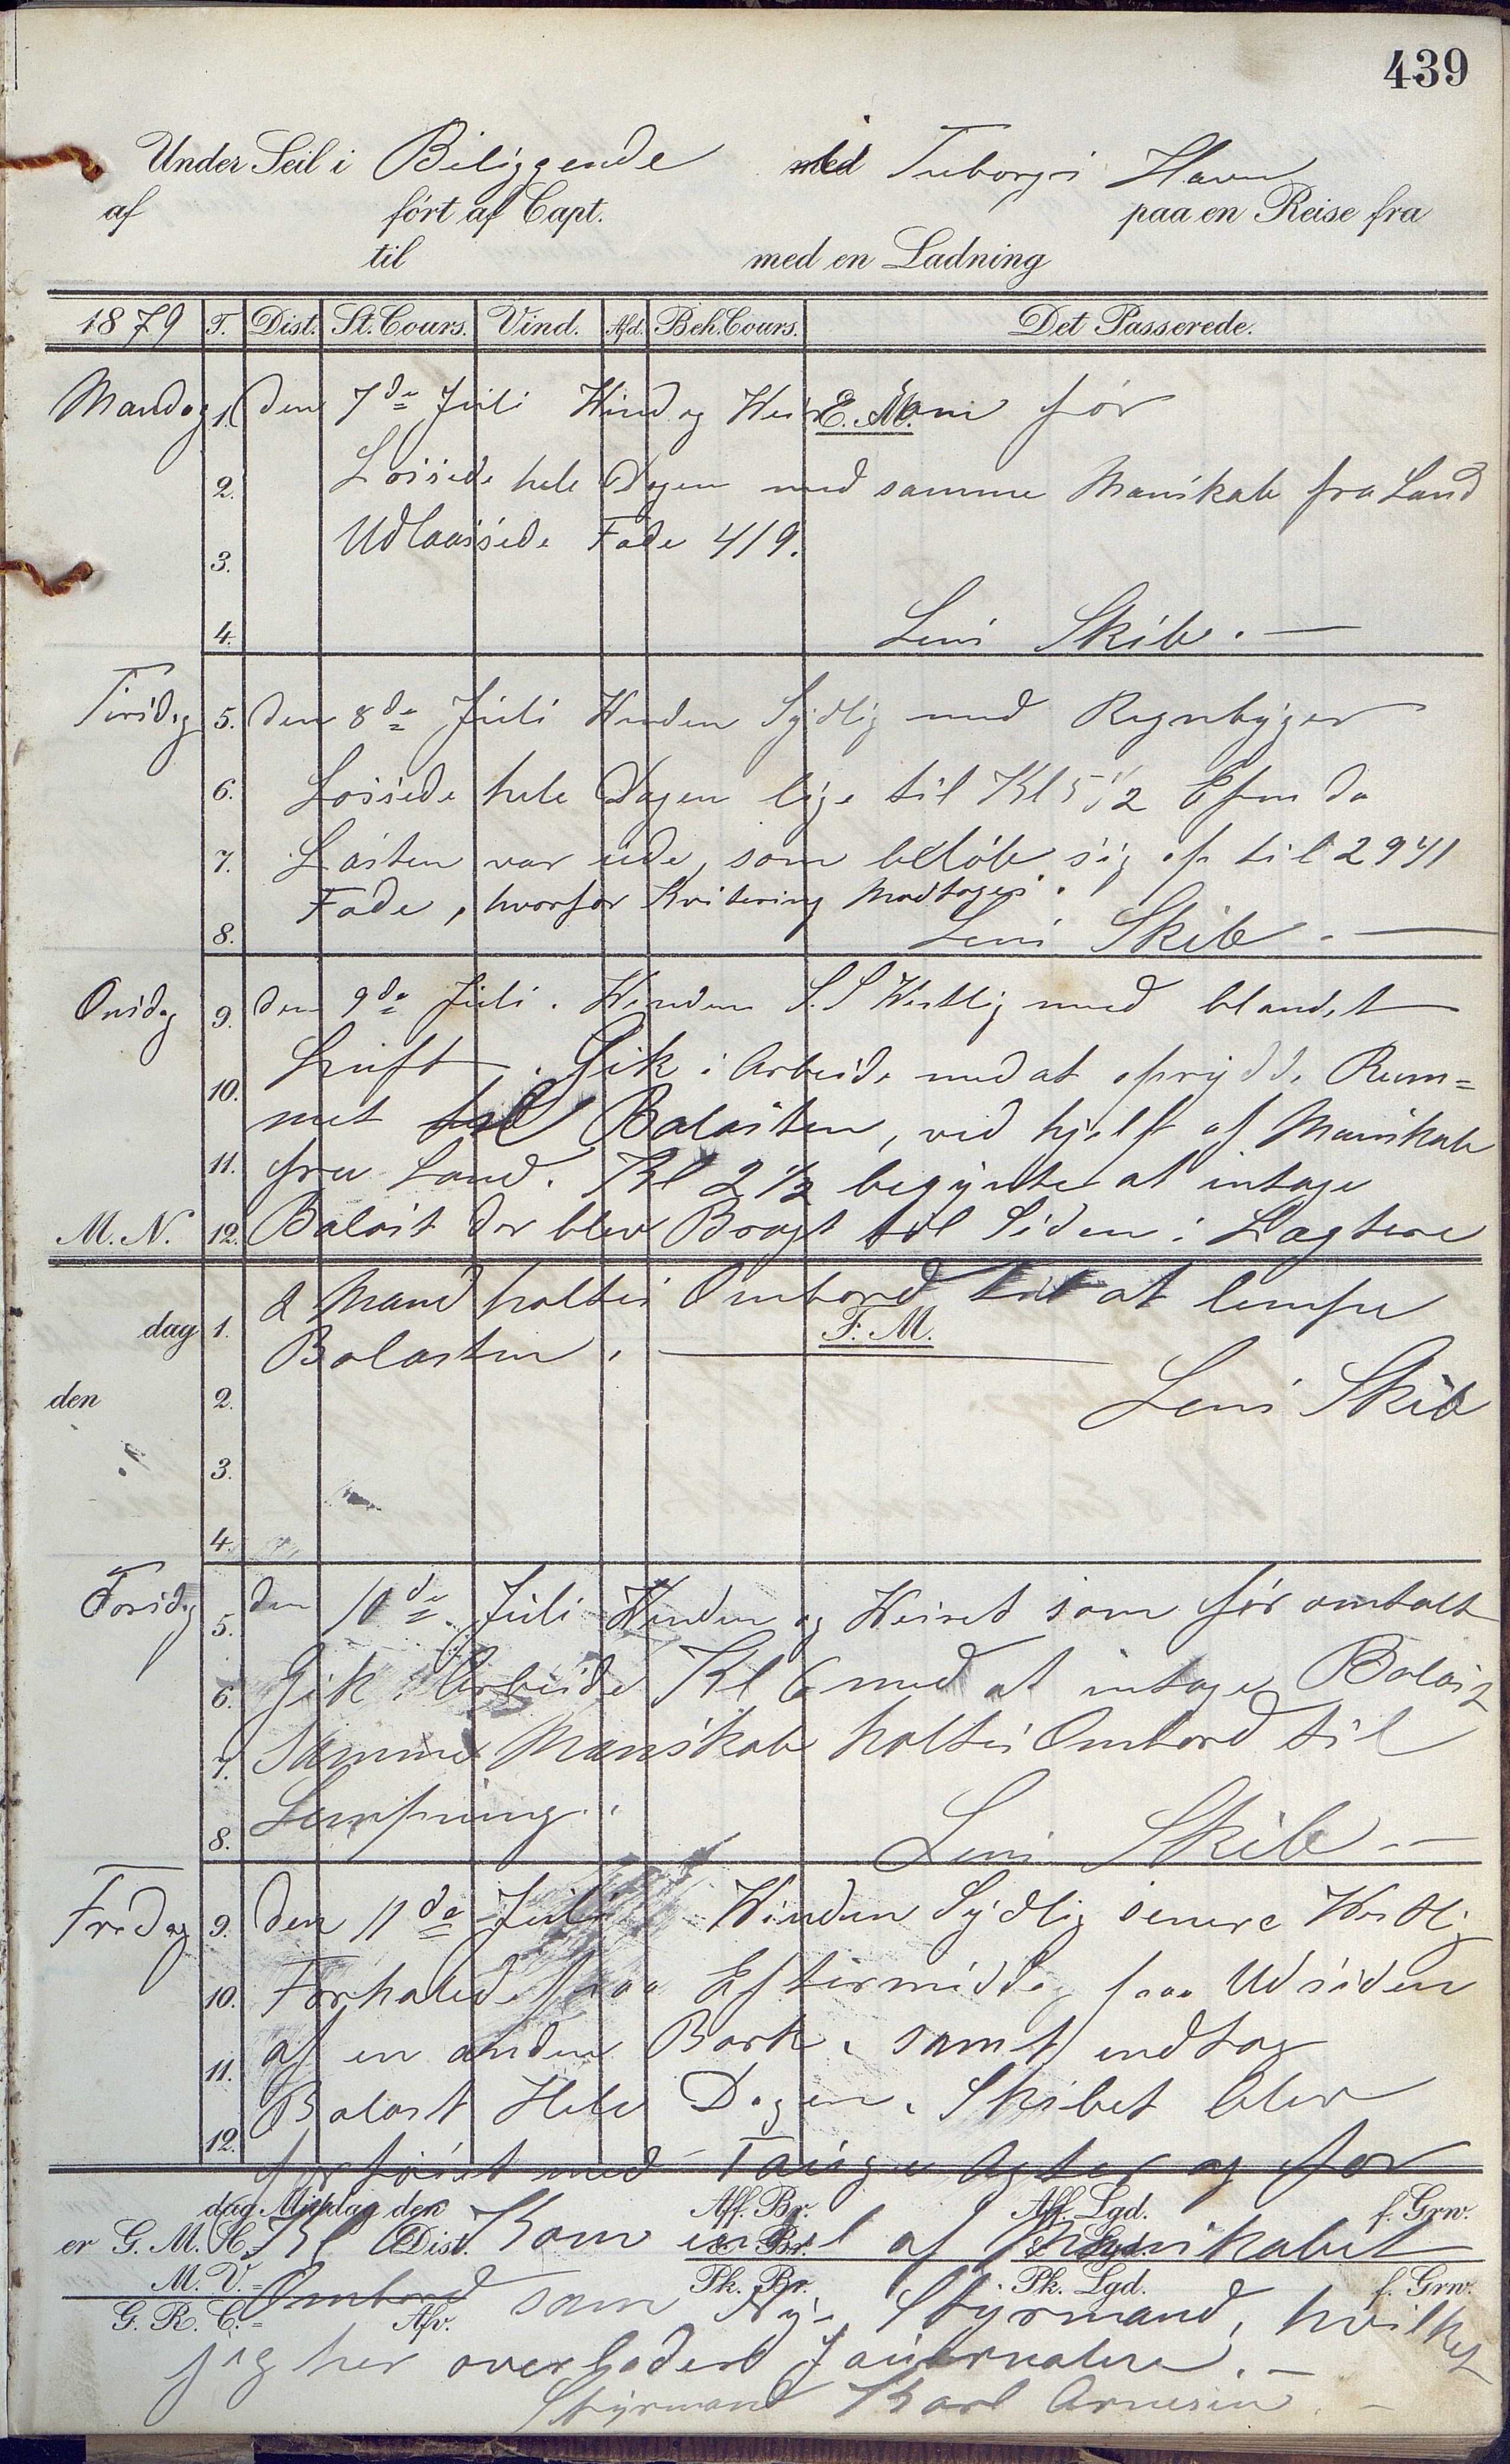 439
Under Seil i Beliggende med i Tuborgs Havn
af ført af Capt. paa en Reise fra
til med en Ladning
1879 T. Dist. St. Cours. Vind. Afd. Beh. Cours. Det Passerede.
E. M.
Mandag 1. den 7de Juli Wind og Weir som før
2. Lossede hele Dagen med samme Manskab fra Land
3. Udlaassede Fade 419.
4. Lens Skib. —
Tirsdag 5. den 8de Juli Winden Sydlig med Regnbyger
6. Lossede hele Dagen lige til Kl 5 1/2 Efm da
7. Lasten var ude, som beløb sig op til 2941
Fade, hvorfor Kvitering Modtages.
8. Lens Skib. —
Onsdag 9. den 9de Juli. Winden S.S Westlig med blandet
10. Luft. Gik i Arbeide med at oprydde Rum=
met til Balasten, ved hjelp af Manskab
11. fra Land. Kl 2 1/2 begynte at intage
M. N. 12. Balast der blev Bragt til Siden i Lægtere
2 Mand holdtes Ombord til at lempe
dag 1. F. M.
Balasten.
den 2. Lens Skib
3.
4.
Torsdag 5. den 10de Juli Winden og Weiret som før omtalt
6. Gik i Arbeide Kl 6 med at intage Balast
7. Samme Manskab holdtes Ombord til
8. Lempning. Lens Skib —
Fredag 9. den 11de Juli Winden Sydlig senere Westlig
10. Forhalede paa Eftermiddag paa Udsiden
11. af en anden Bark. samt indtog
Balast Hele Dagen. Skibet blev
12. forføiet med Touge Agter og for
dag Middag den Aff. Br. Aff. Lgd. f. Grw.
Kl Kom endel af Manskabet
er G. M. C. Dist. Br. Lgd.
M. V. = Pk. Br. Pk. Lgd. f. Grw.
Ombord som Nye Styrmand, hvilket
G. R. C. = Afv.
jeg her overlader Jouurnalen. —
Styrmand Karl Arnesen —